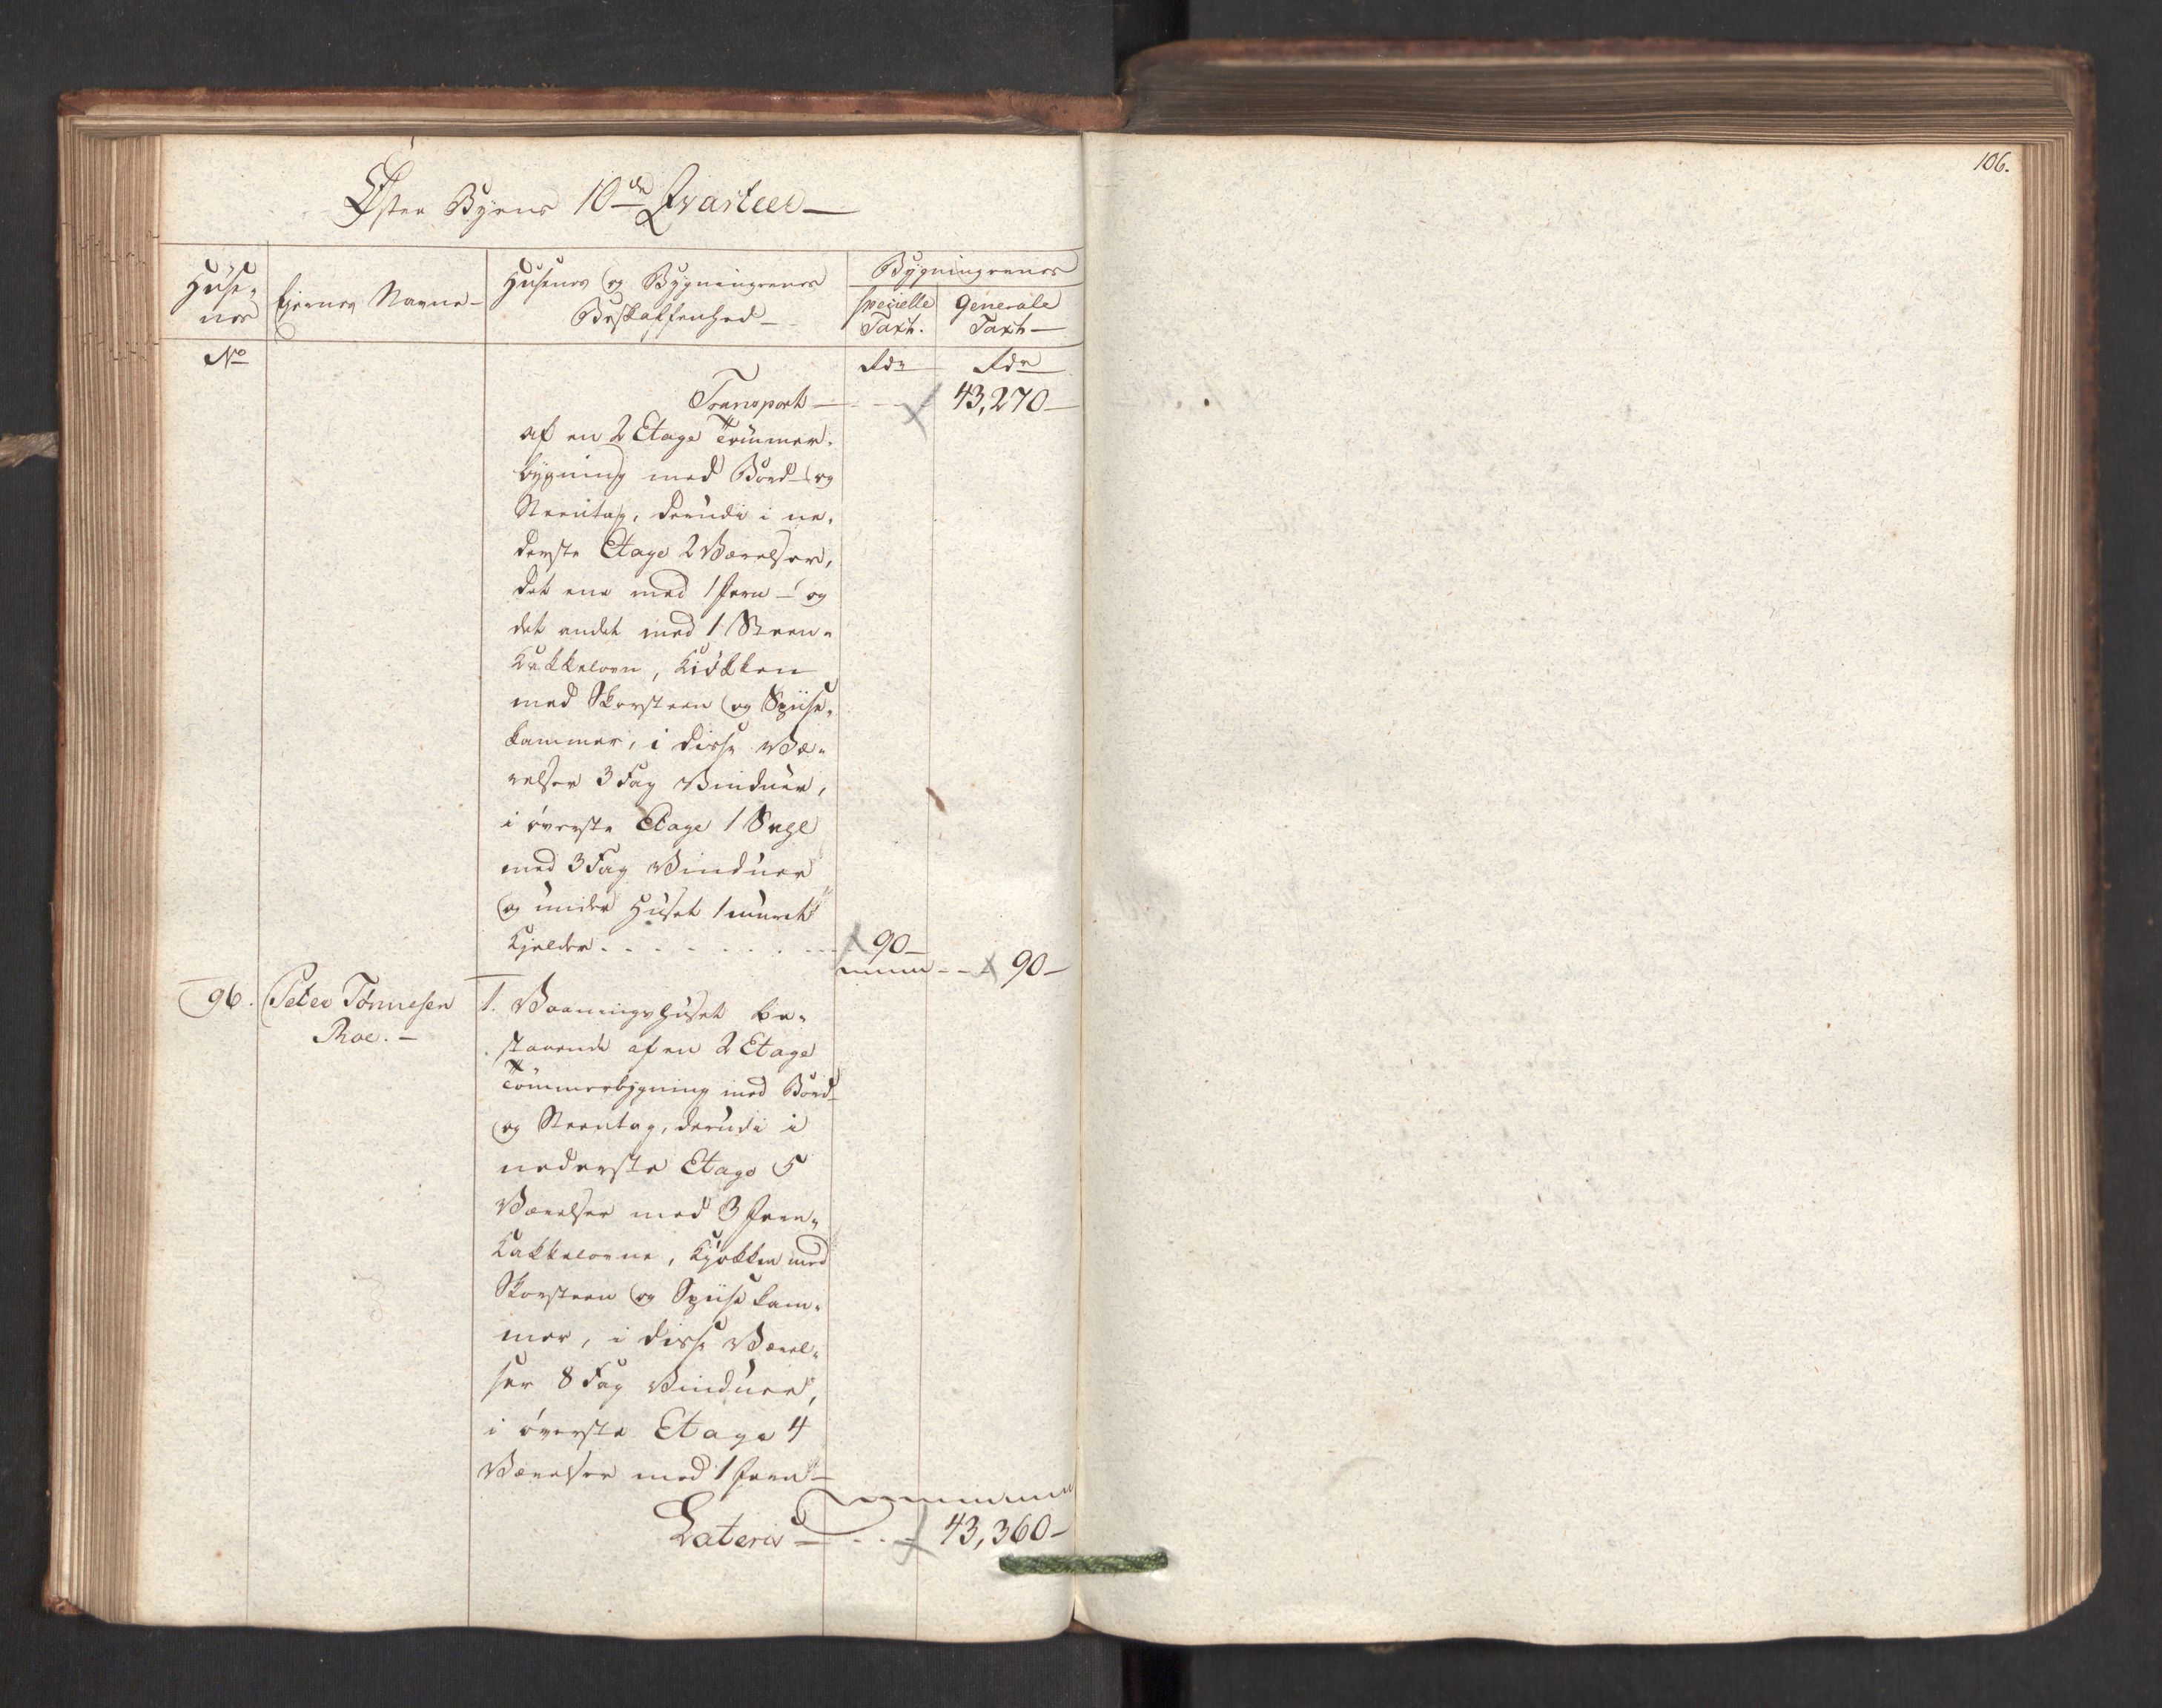 106.
Øster Byens 10de Qvarteer
Huse-
nes
Eiernes Navne
Husenes og Bygningernes
Beskaffenhed
Bygningernes
specielle
Taxt.
Generale
Taxt
No
Rdr
Rdr
Transport 43,270
af en 2 Etage Tömmer-
bygning med Bord- og
Steentag, derudi i ne-
derste Etage 2 Værelser,
det ene med 1 Jern- og
det andet med 1 Steen-
Kakkelovn, Kiökken
med Skorsteen og Spiise-
kammer, i disse Væ-
relser 3 Fag Vinduer,
i överste Etage 1 Sahl
med 3 Fag Vinduer
og under Huset 1 muret
Kjelder 90
90
96. Peter Tönnesen
Roe.
1. Vaaningshuset be-
staaende af en 2 Etage
Tömmerbygning med Bord-
og Steentag, derudi i
nederste Etage 5
Værelser med 3 Jern-
Kakkelovne, Kjökken med
Skorsteen og Spiisekam-
mer, i disse Værel-
ser 8 Fag Vinduer,
i överste Etage 4
Værelser med 1 Jern-
Lateris 43,360